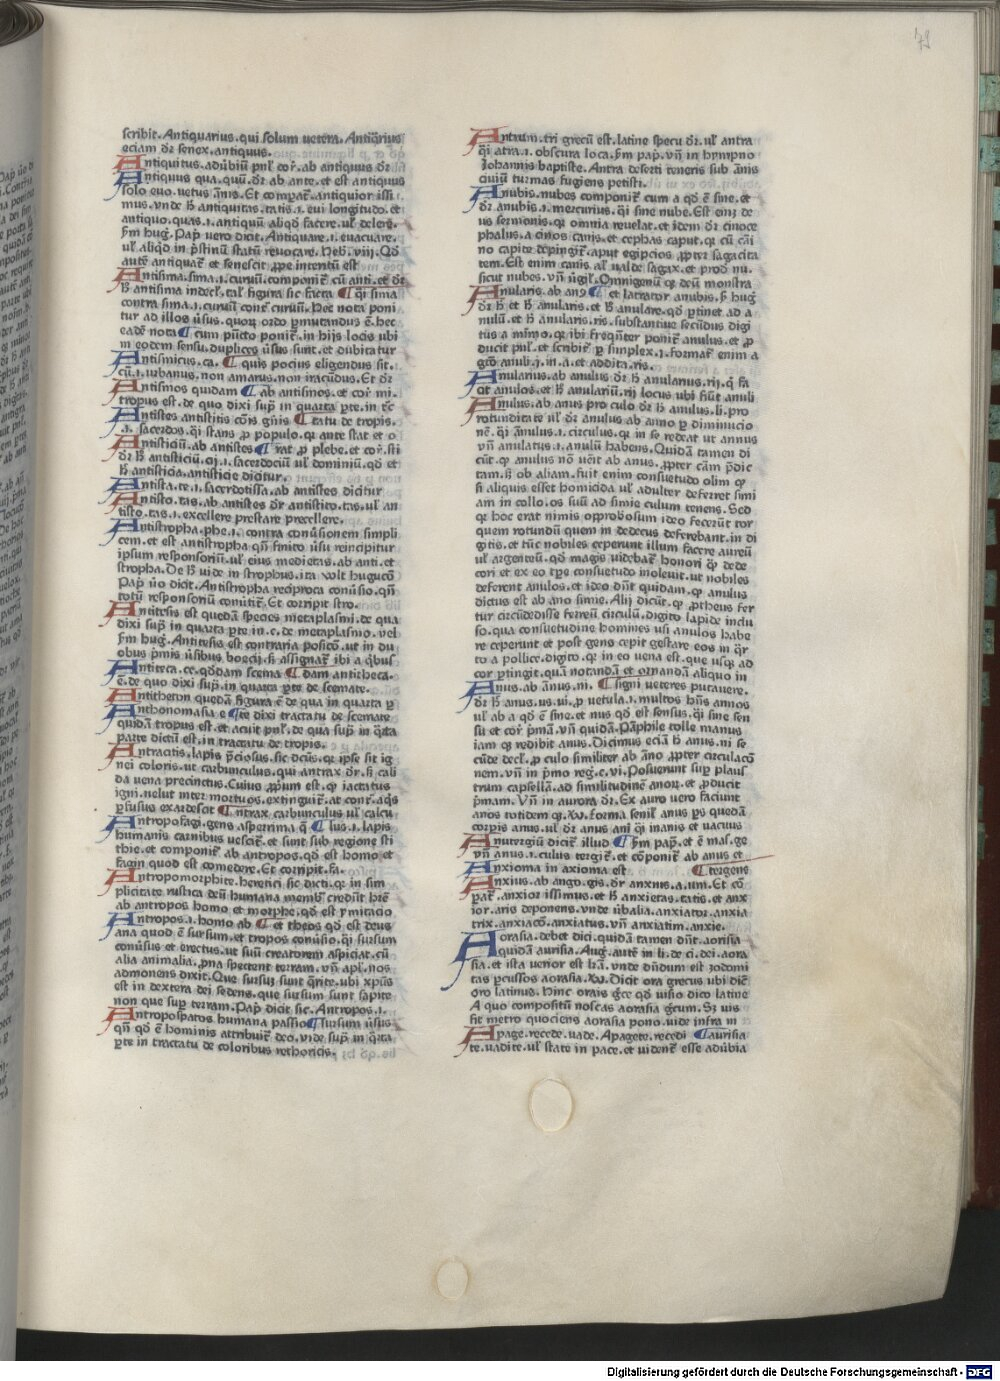 79
scribit. Antiquarius. qui solum uetera. Antiq̄rius
eciam dr̄ senex. antiquus.
Antiquitus. adūbiū pnl̄ cor̄. ab antiquus dr̄
Antiquus qua. quū. dr̄ ab ante. et est antiquus
solo euo. uetus āims. Et compat̄. antiquior issi
mus. vnde h̄ antiquitas. tatis. i. eui longitudo. et
antiquo. quas. i. antiquū aliqd̄ facere. ul̓ delere.
s̄m hug̓. Pap̄ uero dicit. Antiquare. i. euacuare.
ul̓ aliqd̄ in p̄stinū statū reuocare. Heb̓. viij. Qd̄
autē antiquat̄ et senescit ꝓpe interitū est
Antisima. sima. i. curuū. componit̄ cū anti. et dr̄
h̄ antisima indecl̓. tal̓ figura sic facta ¶ q̄i sima
contra sima. i. curuū cont̄ curuū. Hec nota poni
tur ad illos ūsus. quoꝝ ordo ꝑmutandus ē. hec
eadē nota ¶ cum pūcto ponit̄. in hijs locis ubi
in eodem sensu. duplices ūsus sunt. et dubitatur
Antismicus. ca. ¶ quis pocius eligendus sit.
cū. i. urbanus. non amarus. non iracūdus. Et dr̄
Antismos quidam ¶ ab antismos. et cor̄ mi.
tropus est. de quo dixi sup̄ in quarta ꝑte. in tc̄
Antistes antistitis cōīs gn̄is ¶ tatu de tropis.
.i. sacerdos. q̄i stans ꝓ populo. qꝛ ante stat et o
Antisticiū. ab antistes ¶ rat ꝓ plebe. et cor̄. sti
dr̄ h̄ antisticiū. cij. i. sacerdociū ul̓ dominiū. qd̄ et
h̄ antisticia. antisticie dicitur.
Antista. te. i. sacerdotissa. ab antistes dicitur
Antisto. tas. ab antistes dr̄ antistito. tas. ul̓ an
tisto. tas. i. excellere prestare precellere.
Antistropha. phe. i. contra conūsionem simpli
cem. et est antistropha qn̄ finito ūsu reincipitur
ipsum responsoriū. ul̓ eius medietas. ab anti. et
stropha. De h̄ uide in strophus. ita volt huguco
Pap̄ ūo dicit. Antistropha reciproca conūsio. qn̄
totū responsoriū conūtit̄. Et corripit stro.
Antitesis est quedā species metaplasmi. de qua
dixi sup̄ in quarta ꝑte. in. c. de metaplasmo. vel
s̄m hug̓. Antitesis est contraria posicō. ut in du
obus p̄mis ūsibus boecij. si assignat̄ ibi a q̄bus
Antiteca. ce. qd̄dam scema ¶ dam antitheca.
e. de quo dixi sup̄. in quarta ꝑte de scemate.
Antitheton quedā figura ē de qua in quarta ꝑ
Anthonomasia e ¶ te dixi tractatu de scemate
quidā tropus est. et acuit pnl̓. de qua sup̄ in q̄rta
parte dictū est. in tractatu de tropis.
Antracitis. lapis p̄ciosus. sic dcūs. qꝛ ipse sit ig
nei coloris. ut carbunculus. qui antrax dr̄. si cali
da uena precinctus. Cuius ꝓpriū est. qꝛ iactatus
igni. uelut inter mortuos. extinguit̄. at cont̄. aq̄s
ꝑfusus exardescit ¶ Antrax carbunculus ul̓ calcu
Antropofagi. gens asperrima q̄ ¶ lus. i. lapis
humanis carnibus uescit̄. et sunt sub regione sci
thie. et componit̄ ab antropos. qd̄ est homo et
fagin quod est comedere. Et corripit. fa.
Antropomorphite. heretici sic dicti. qꝛ in sim
plicitate rustica deū humana memb̄ credūt hr̄e
ab antropos homo et morphe. qd̄ est ymitacio
Antropos. i. homo ab ¶ et theos qd̄ est deus
ana quod ē sursum. et tropos conūsio. q̄i sursum
conūsus et erectus. ut suū creatorem aspiciat. cū
alia animalia. ꝓna spectent terram. vn̄ apl̓. nos
admonens dixit. Que sursuꝫ sunt q̄rite. ubi xp̄us
est in dextera dei sedens. que sursum sunt sapite
non que sup̄ terram. Pap̄ dicit sic. Antropos. i.
Antropospatos. humana passio ¶ sursum ūsus
qn̄ qd̄ ē hominis attribuit̄ deo. vide sup̄ in q̄rta
ꝑte in tractatu de coloribus rethoricis.
Antrum. tri grecū est. latine specu dr̄. ul̓ antra
q̄i atra. i. obscura loca. s̄m pap̄. vn̄ in hympno
Johannis baptiste. Antra deserti teneris sub ānis
ciuiū turmas fugiens petisti.
Anubis. nubes componit̄ cum a qd̄ ē sine. et
dr̄ anubis. i. mercurius. q̄i sine nube. Est eniꝫ de
us sermonis. qꝛ omnia reuelat. et idem dr̄ cinoce
phalus. a cinos canis. et cephas caput. qꝛ cū cāi
no capite depingit̄. aput egipcios ꝓpter sagacita
tem. Est enim canis. al̓ ualde sagax. et prod̓ nu.
sicut nubes. vn̄ ūgil̓. Omnigenū qꝫ deū monstra
Anularis. ab an9 ¶ et latrator anubis. s̄ hug̓
dr̄ h̄ et h̄ anularis. et h̄ anulare. qd̄ ꝑtinet ad a
nulū. et h̄ anularis. ris. substantiue secūdus digi
tus a mīmo. qꝛ ibi freqn̄ter ponit̄ anulus. et ꝓ
ducit pnl̓. et scribit̄ ꝑ simplex. l. format̄ enim a
gtō anuli. j. in. a. et addita. ris.
Anularius. ab anulus dr̄ h̄ anularius. rij. q̄ fa
cit anulos. et h̄ anulariū. rij locus ubi fiūt anuli
Anulus. ab anus pro culo dr̄ h̄ anulus. li. pro
rotunditate ul̓ dr̄ anulus ab anno ꝑ diminucio
nē. q̄i ānulus. i. circulus. qꝛ in se redeat ut annus
vn̄ anulatus. i. anulū habens. Quidā tamen di
cūt. qꝛ anulus nō ueīt ab anus. ꝓpter cām p̄dic
tam. sꝫ ob aliam. fuit enim consuetudo olim qꝛ
si aliquis esset homicida ul̓ adulter deferret simi
am in collo. os suū ad simie culum tenens. Sed
qꝛ hoc erat nimis opprobosum ideo fecerūt tor
quem rotundū quem in dedecus deferebant. in di
gitis. et tūc nobiles ceperunt illum facere aureū
ul̓ argenteū. qd̄ magis uidebat̄ honori qꝫ dede
cori et ex eo tꝑe consuetudo inoleuit. ut nobiles
deferent anulos. et ideo dn̄t quidam. qꝛ anulus
dictus est ab ano simie. Alij dicūt. qꝛ ꝓtheus fer
tur circūdedisse ferreū circulū. digito lapide inclu
so. qua consuetudine homines usi anulos habe
re ceperunt et post gens cepit gestare eos in q̄r
to a pollice. digito. qꝛ in eo uena est. que usqꝫ ad
cor ꝑtingit. quā notandā et ornandā aliquo in
Anus. ab ānus. ni. ¶ signi ueteres putauere.
dr̄ h̄ anus. us. ui. ꝓ uetula. i. multos hn̄s annos
ul̓ ab a qd̄ ē sine. et nus qd̄ est sensus. q̄i sine sen
su et cor̄ p̄mā. vn̄ quidā. Pāphile tolle manus
iam qꝛ redibit anus. Dicimus eciā h̄ anus. ni se
cūde decl̓. ꝓ culo similiter ab āno ꝓpter circulacō
nem. vn̄ in p̄mo reg̓. c. vi. Posuerunt sup̄ plaus
trum capsellā. ad similitudinē anoꝝ. et ꝓducit
p̄mam. Vn̄ in aurora dr̄. Ex auro uero faciunt
anos totidem qꝫ. xv. Forma senil̓ anus ꝑs quedā
corꝑis anus. ul̓ dr̄ anus anī q̄i inanis et uacuus
Anutergiū dicit̄ illud ¶ s̄m pap̄. et ē mas. ge
vn̄ anus. i. culus tergit̄. et cōponit̄ ab anus et
Anxioma in axioma est ¶ tergens
Anxius. ab ango. gis. dr̄ anxius. a. um. Et cō
pat̄. anxior issimus. et h̄ anxietas. tatis. et anx
ior. aris deponens. vnde ūbalia. anxiator. anxia
trix. anxiacō. anxiatus. vn̄ anxiatim. anxie.
Aorasia. debet dici. quidā tamen dn̄t. aorisia
quidam aurisia. Aug̓. aūtē in li. de ci. dei. aora
sia. et ista uerior est lr̄a. vn̄ de dn̄dum est zodomi
tas ꝑcussos aorasia. xv. Dicit ora grecus ubi diē
oro latinus. hinc orais g̓ce qd̄ uisio dico latine
A quo compositū noscas aorasia g̓cum. Sꝫ uis
sit metro quociens aorasia pono. vide infra in
Apage. recede. uade. Apagete. recedi ¶ aurisia
te. uadite. ul̓ state in pace. et uident̄ esse adūbia
Digitalisierung gefördert durch die Deutsche Forschungsgemeinschaft - DFG